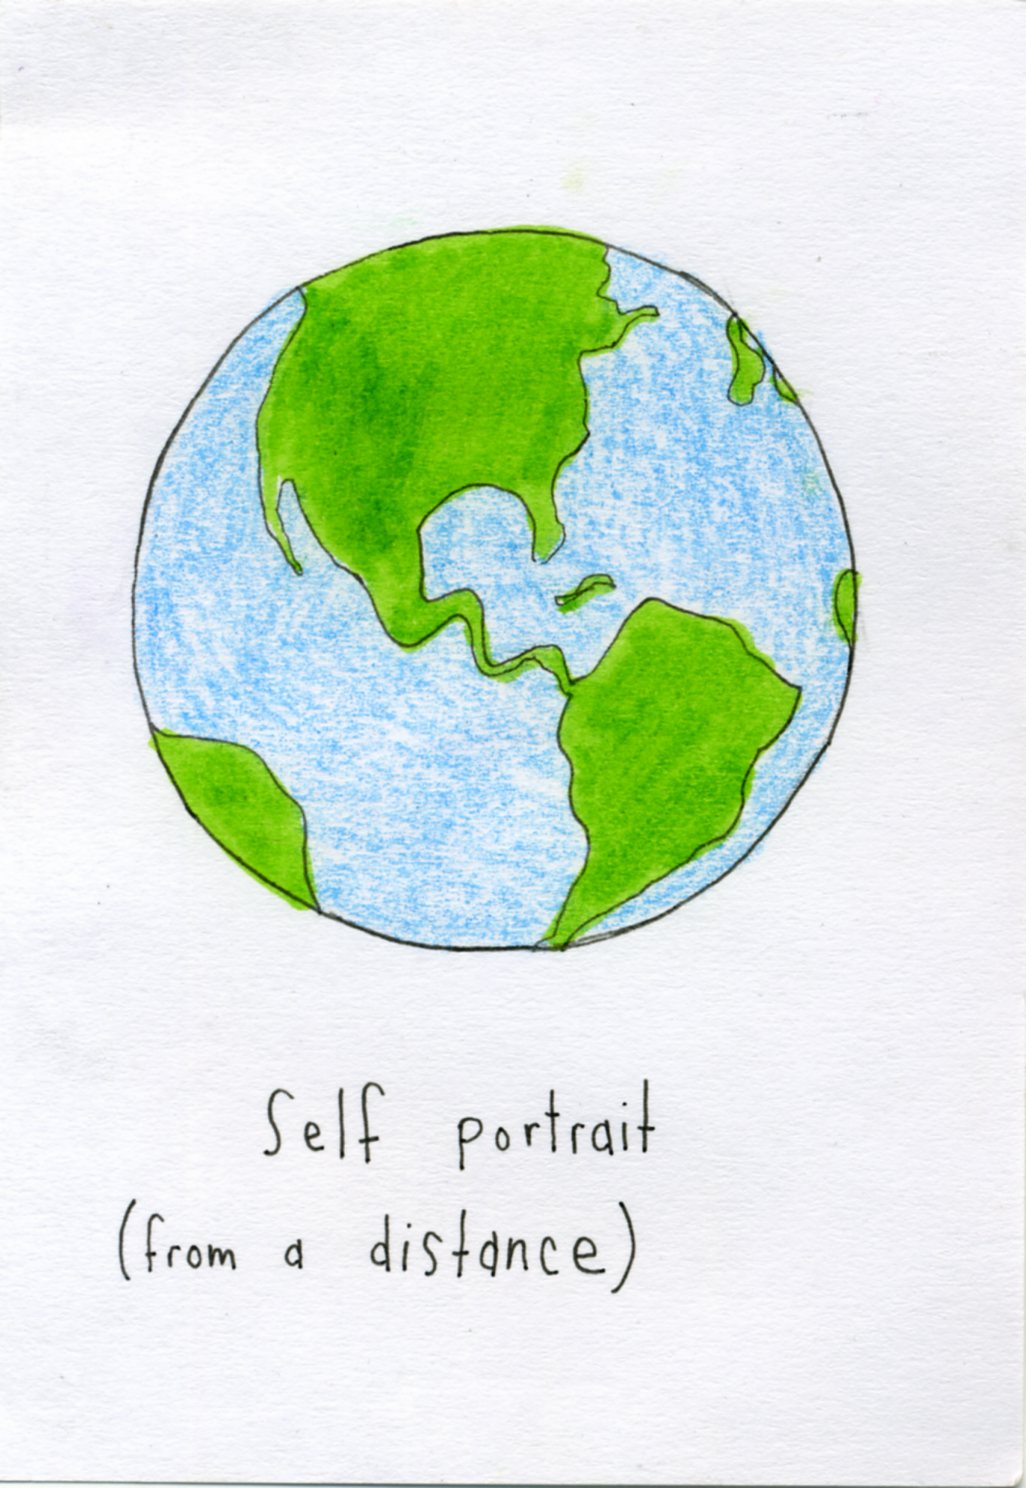 Self portrait
(from a distance)